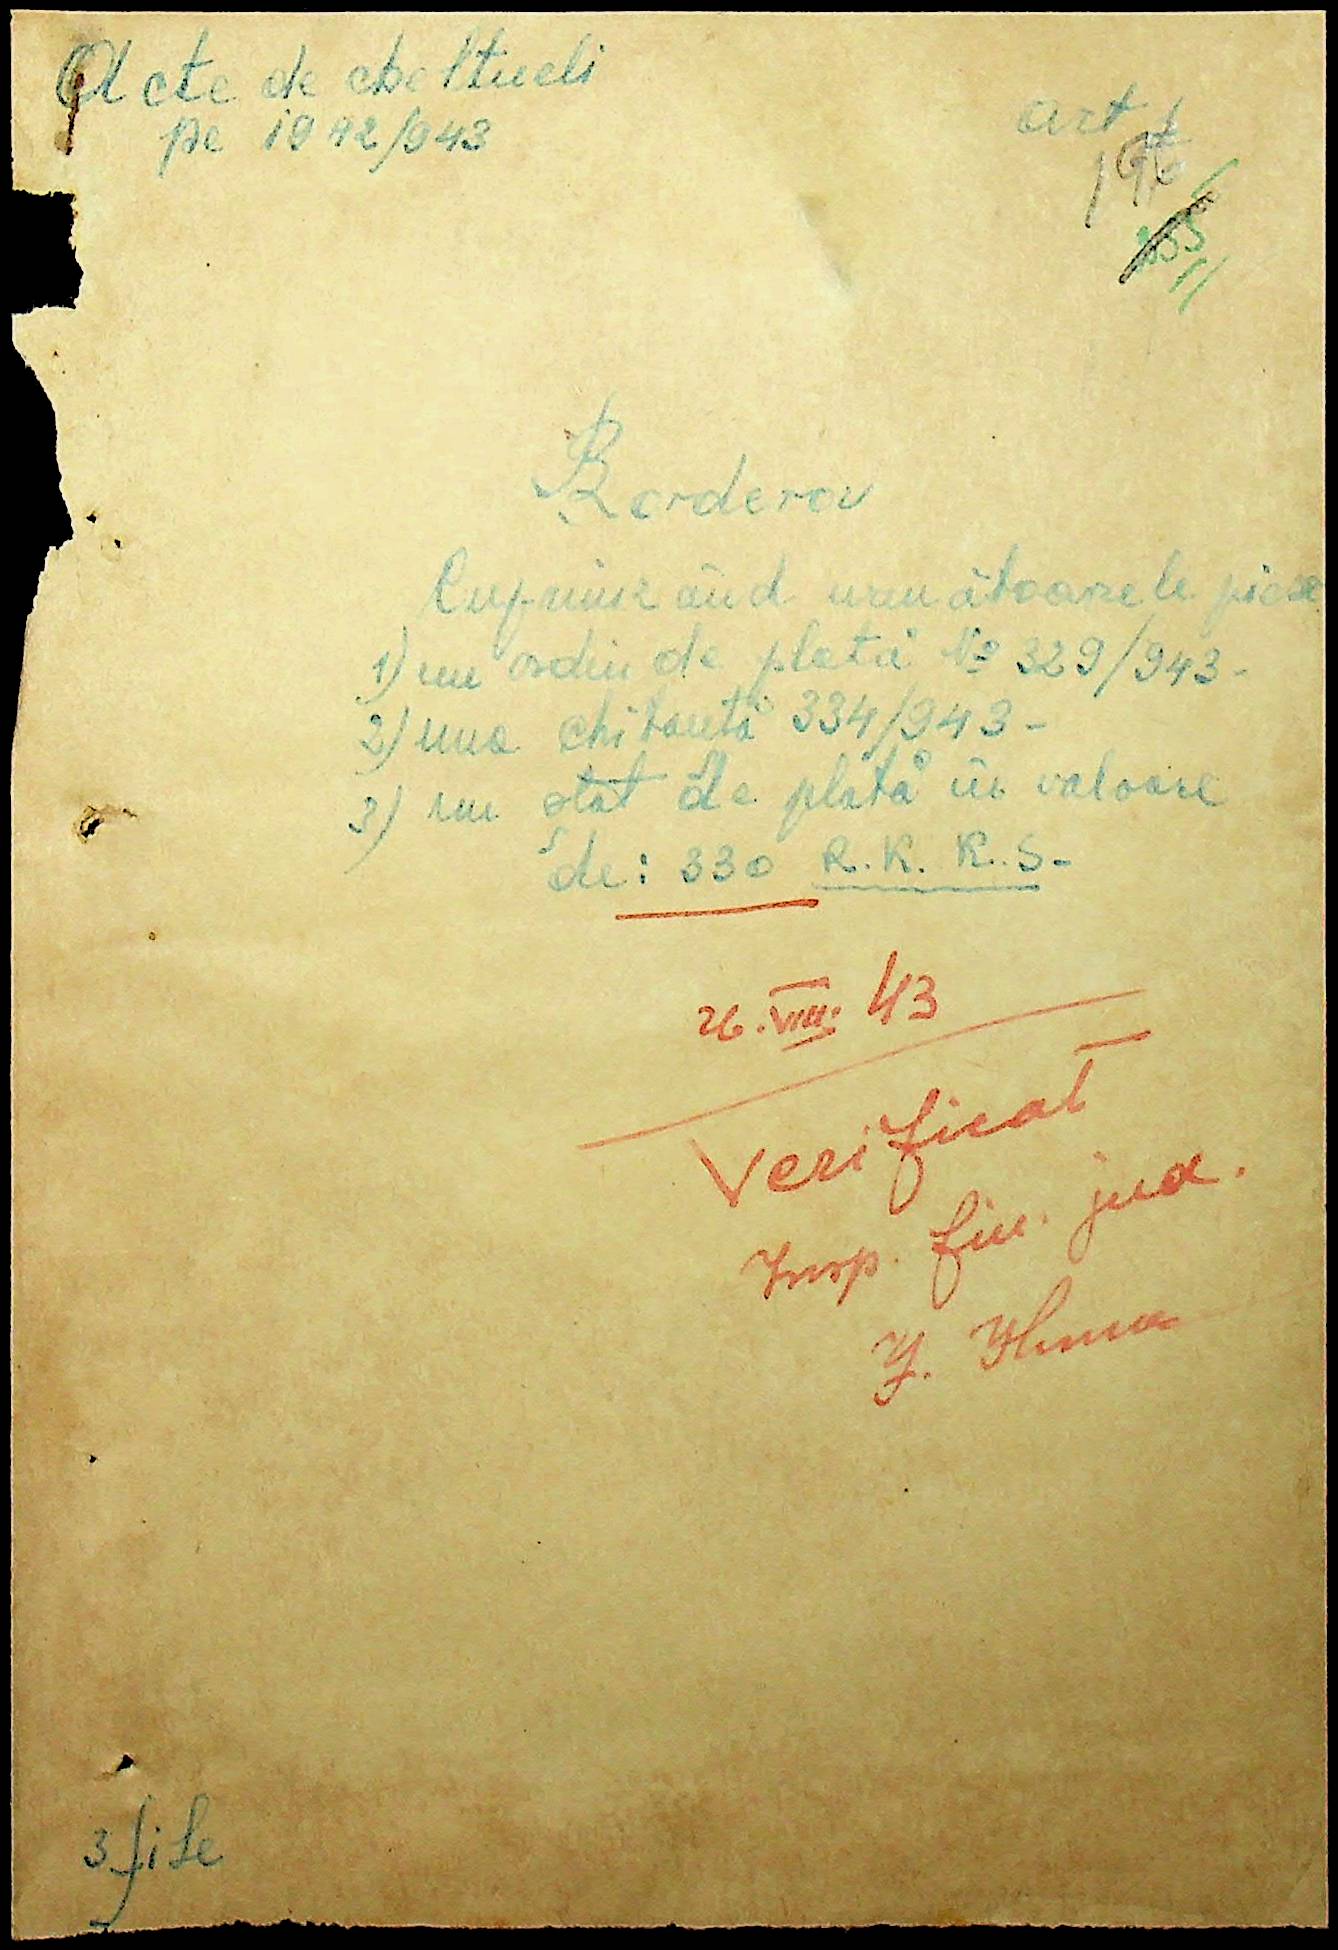 Acte de cheltueli
pe 1942/943
art 1
196
Borderou
Cuprinzând următoarele piese
1) un ordin de plată No 329/943-
2) una chitanță 334/943-
3) un stat de plată în valoare
de: 330 R.K.K.S-
26.VIII.43
Verificat
Insp. fin. jud.
3 file